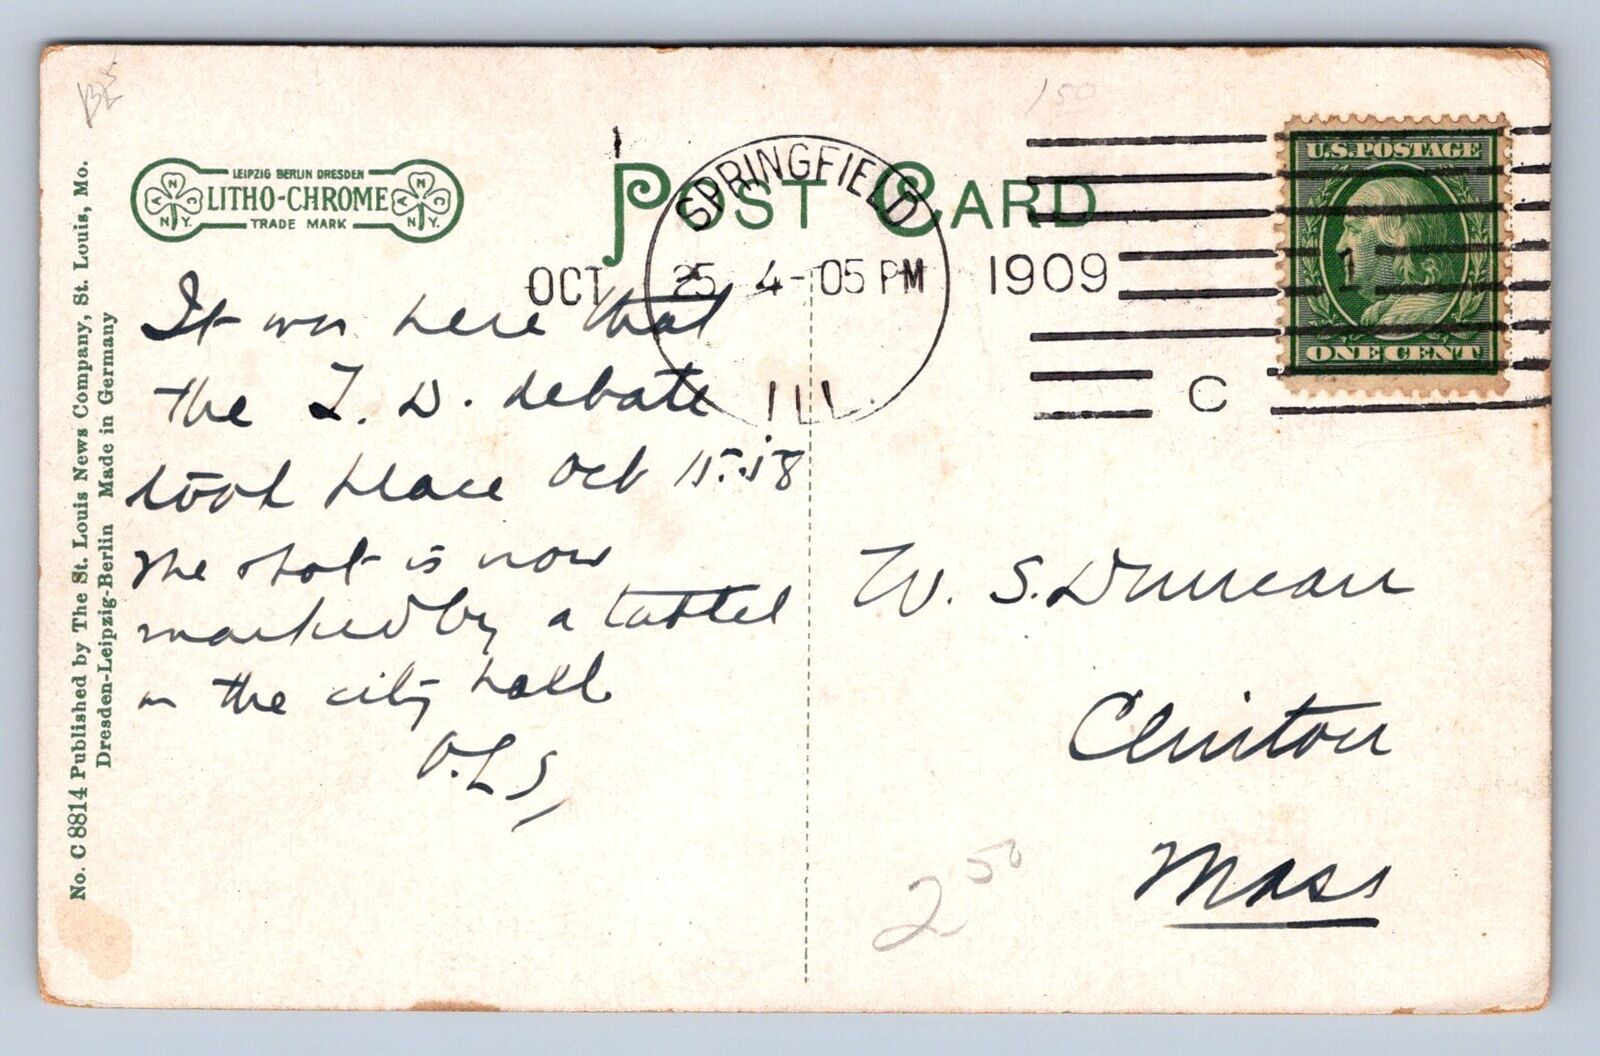 BE
150
LEIPZIG BERLIN DRESDEN
LITHO-CHROME
TRADE MARK
A N C N.Y.
A N C N.Y.
POST CARD
SPRINGFIELD
OCT 25 4-05 PM 1909
ILL.
C
U.S. POSTAGE
1
ONE CENT
It was here that
the L. D. debate
took place Oct 15.'58
The spot is now
marked by a tablet
in the city hall
O.L.S,
W. S. Duncan
Clinton
Mass
2 50
No. C 8814 Published by The St. Louis News Company, St. Louis, Mo.
Dresden-Leipzig-Berlin Made in Germany